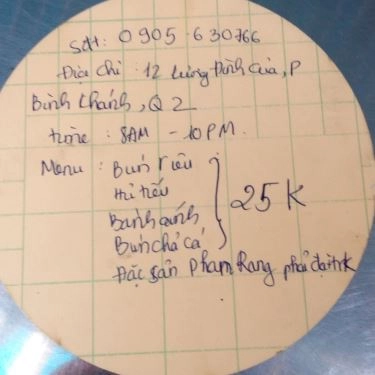 Sđt: 0905 630766
Địa chỉ : 12 Lương Định Của, P
Bình Khánh, Q2
time : 8AM - 10PM.
Menu : Bún riêu
Hủ tiếu
Bánh canh
Bún chả cá
25K
Đặc sản Phan Rang phải đặt trc